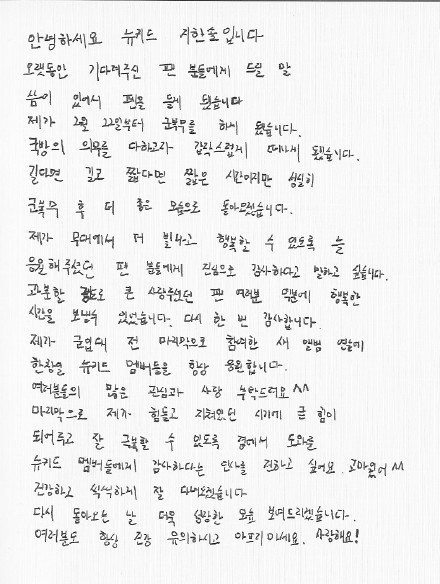 안녕하세요 뉴키드 지한솔입니다
오랫동안 기다려주신 팬 분들에게 드릴 말
씀이 있어서 펜을 들게 됐습니다
제가 2월 22일부터 군복무를 하게 됐습니다.
국방의 의무를 다하고자 갑작스럽게 떠나게 됐습니다.
길다면 길고 짧다면 짧은 시간이지만 성실히
군복무 후 더 좋은 모습으로 돌아오겠습니다.
제가 무대에서 더 빛나고 행복할 수 있도록 늘
응원해주셨던 팬 분들에게 진심으로 감사하다고 말하고 싶습니다.
과분할 정도로 큰 사랑주셨던 팬 여러분 덕분에 행복한
시간을 보낼수 있었습니다. 다시 한 번 감사합니다.
제가 군입대 전 마지막으로 참여한 새 앨범 열심히
한창일 뉴키드 멤버들을 항상 응원합니다.
여러분들의 많은 관심과 사랑 부탁드려요 ^^
마지막으로 제가 힘들고 지쳐있던 시기에 큰 힘이
되어주고 잘 극복할 수 있도록 곁에서 도와준
뉴키드 멤버들에게 감사하다는 인사를 전하고 싶어요. 고마웠어 ^^
건강하고 씩씩하게 잘 다녀오겠습니다
다시 돌아오는 날 더욱 성장한 모습 보여드리겠습니다.
여러분도 항상 건강 유의하시고 아프지마세요. 사랑해요!